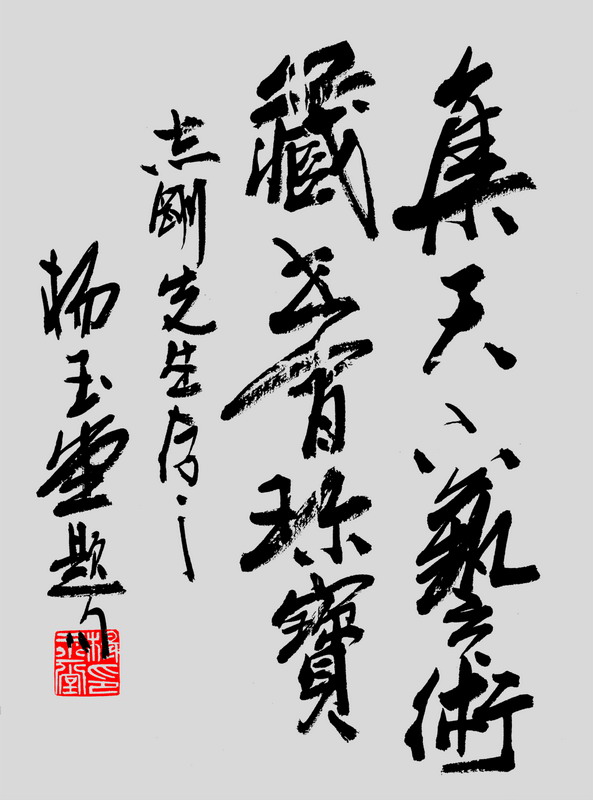 集天下藝術
藏世有珍寶
志剛先生存之
杨玉堂題
楊印
玉堂